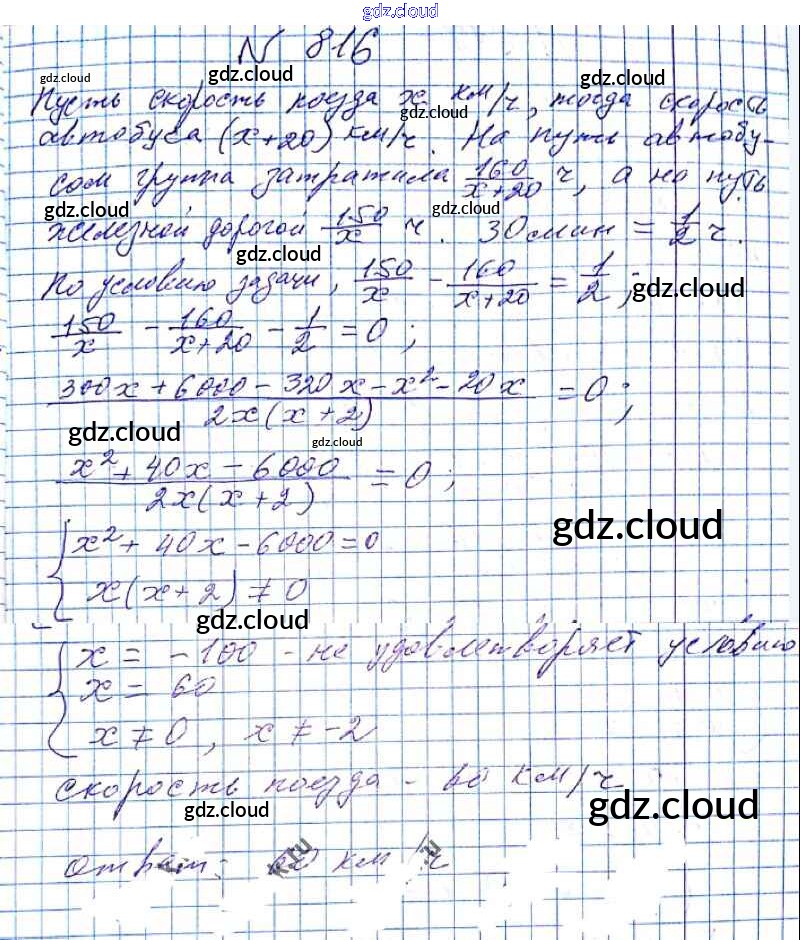 gdz.cloud
N 816
gdz.cloud gdz.cloud
Пусть скорость поезда x км/ч, тогда скорость
gdz.cloud
автобуса (x+20) км/ч. На путь автобу-
сом группа затратила 160/(x+20) ч, а на путь
gdz.cloud gdz.cloud
железной дорогой 150/x ч. 30 мин = 1/2 ч.
gdz.cloud
По условию задачи, 150/x - 160/(x+20) = 1/2;
gdz.cloud
150/x - 160/(x+20) - 1/2 = 0;
(300x + 6000 - 320x - x² - 20x)/(2x(x+2)) = 0;
gdz.cloud gdz.cloud
(x² + 40x - 6000)/(2x(x+2)) = 0;
gdz.cloud
{ x² + 40x - 6000 = 0
x(x+2) ≠ 0
gdz.cloud
{ x = -100 - не удовлетворяет условию
x = 60
x ≠ 0, x ≠ -2
скорость поезда - 60 км/ч
gdz.cloud gdz.cloud
Ответ: 60 км/ч